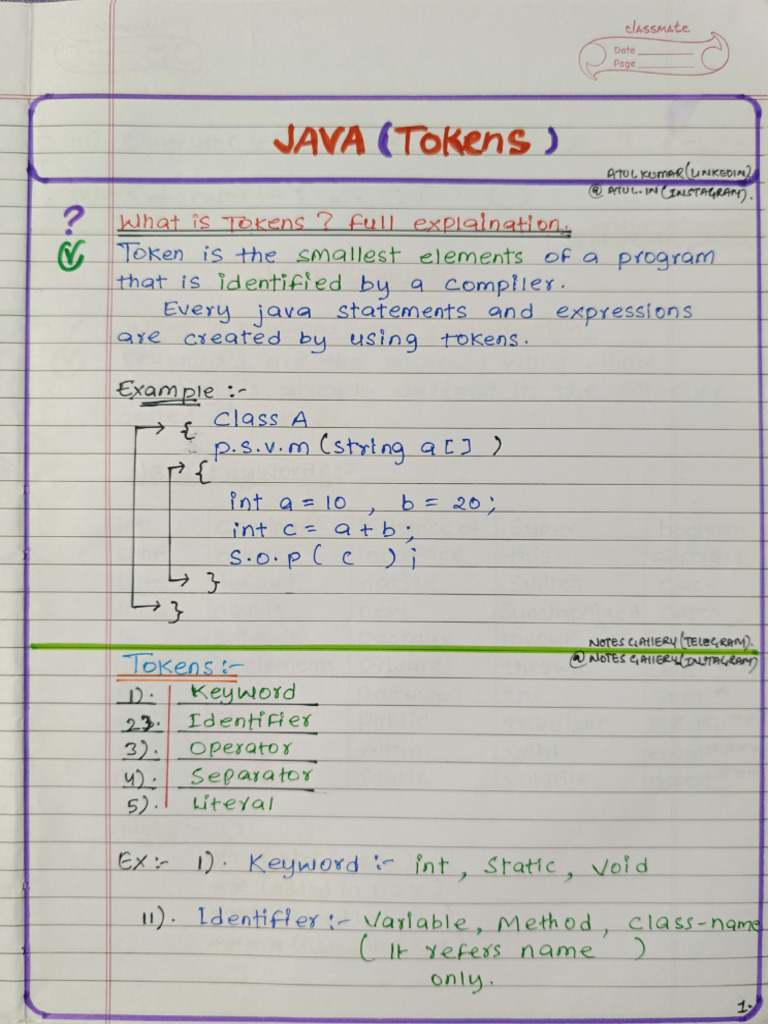 classmate
Date
Page
JAVA (Tokens)
ATUL KUMAR (LINKEDIN)
@ ATUL.IN (INSTAGRAM).
? What is Tokens ? full explaination.
Token is the smallest elements of a program
that is identified by a compiler.
Every java statements and expressions
are created by using tokens.
Example :-
{ Class A
p.s.v.m (string a[] )
{
int a = 10 , b = 20;
int c = a + b ;
S.o.p ( c ) ;
}
}
NOTES GALLERY (TELEGRAM).
@ NOTES GALLERY (INSTAGRAM)
Tokens :-
1). Keyword
2). Identifier
3). Operator
4). Separator
5). Literal
Ex :- I). Keyword :- int , Static , Void
II). Identifier :- Variable, Method , class-name
( It refers name )
only.
1.